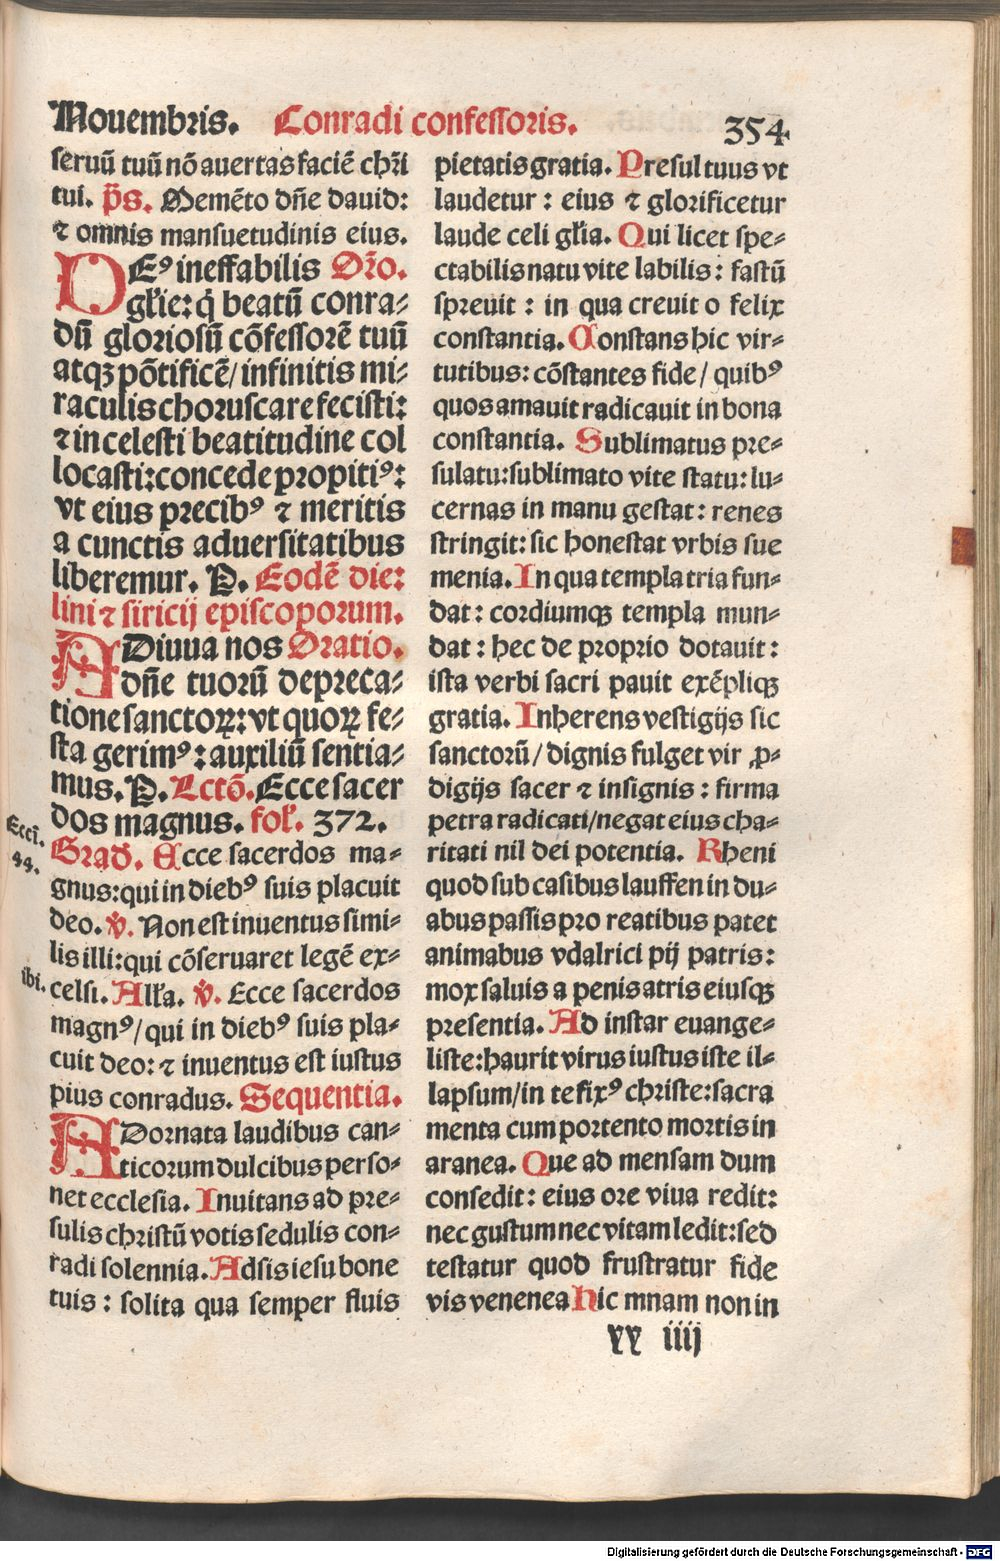 Nouembris. Conradi confessoris. 354
seruū tuū nō auertas faciē chr̄i
tui. p̄s. Memēto dn̄e dauid:
⁊ omnis mansuetudinis eius.
DEꝰ ineffabilis Or̄o.
gl̄ie: q̇ beatū conra⸗
dū gloriosū cōfessorē tuū
atqꝫ pōtificē/ infinitis mi⸗
raculis choruscare fecisti:
⁊ in celesti beatitudine col
locasti: concede propitiꝰ:
vt eius precibꝰ ⁊ meritis
a cunctis aduersitatibus
liberemur. P. Eodē die:
lini ⁊ siricij episcoporum.
ADiuua nos Oratio.
dn̄e tuorū depreca⸗
tione sanctoꝝ: vt quoꝝ fe⸗
sta gerimꝰ: auxiliū sentia⸗
mus. P. Lctō. Ecce sacer
dos magnus. fol. 372.
Ecci.
44.
Grad. Ecce sacerdos ma⸗
gnus: qui in diebꝰ suis placuit
deo. v̄. Non est inuentus simi⸗
lis illi: qui cōseruaret legē ex⸗
ibi.
celsi. All'a. v̄. Ecce sacerdos
magnꝰ/ qui in diebꝰ suis pla⸗
cuit deo: ⁊ inuentus est iustus
pius conradus. Sequentia.
ADornata laudibus can⸗
ticorum dulcibus perso⸗
net ecclesia. Inuitans ad pre⸗
sulis christū votis sedulis con⸗
radi solennia. Adsis iesu bone
tuis: solita qua semper fluis
pietatis gratia. Presul tuus vt
laudetur: eius ⁊ glorificetur
laude celi gl'ia. Qui licet spe⸗
ctabilis natu vite labilis: fastū
spreuit: in qua creuit o felix
constantia. Constans hic vir⸗
tutibus: cōstantes fide/ quibꝰ
quos amauit radicauit in bona
constantia. Sublimatus pre⸗
sulatu: sublimato vite statu: lu⸗
cernas in manu gestat: renes
stringit: sic honestat vrbis sue
menia. In qua templa tria fun⸗
dat: cordiumqꝫ templa mun⸗
dat: hec de proprio dotauit:
ista verbi sacri pauit exēpliqꝫ
gratia. Inherens vestigijs sic
sanctorū/ dignis fulget vir ꝓ⸗
digijs sacer ⁊ insignis: firma
petra radicati/ negat eius cha⸗
ritati nil dei potentia. Rheni
quod sub casibus lauffen in du⸗
abus passis pro reatibus patet
animabus vdalrici pij patris:
mox saluis a penis atris eiusqꝫ
presentia. Ad instar euange⸗
liste: haurit virus iustus iste il⸗
lapsum/ in te fixꝰ christe: sacra
menta cum portento mortis in
aranea. Que ad mensam dum
consedit: eius ore viua redit:
nec gustum nec vitam ledit: sed
testatur quod frustratur fide
vis venenea Hic mnam non in
xx iiij
Digitalisierung gefördert durch die Deutsche Forschungsgemeinschaft - DFG